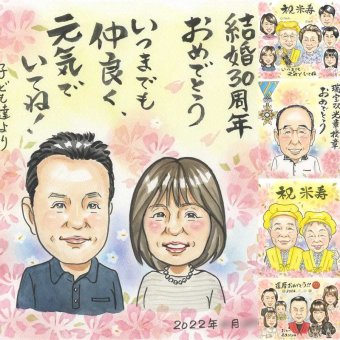 結婚30周年
おめでとう
いつまでも
仲良く、
元気で
いてね!
子ども達より
2022年 月
祝米寿
瑞宝双光章授章
おめでとう
祝 米寿
還暦おめでとう!!